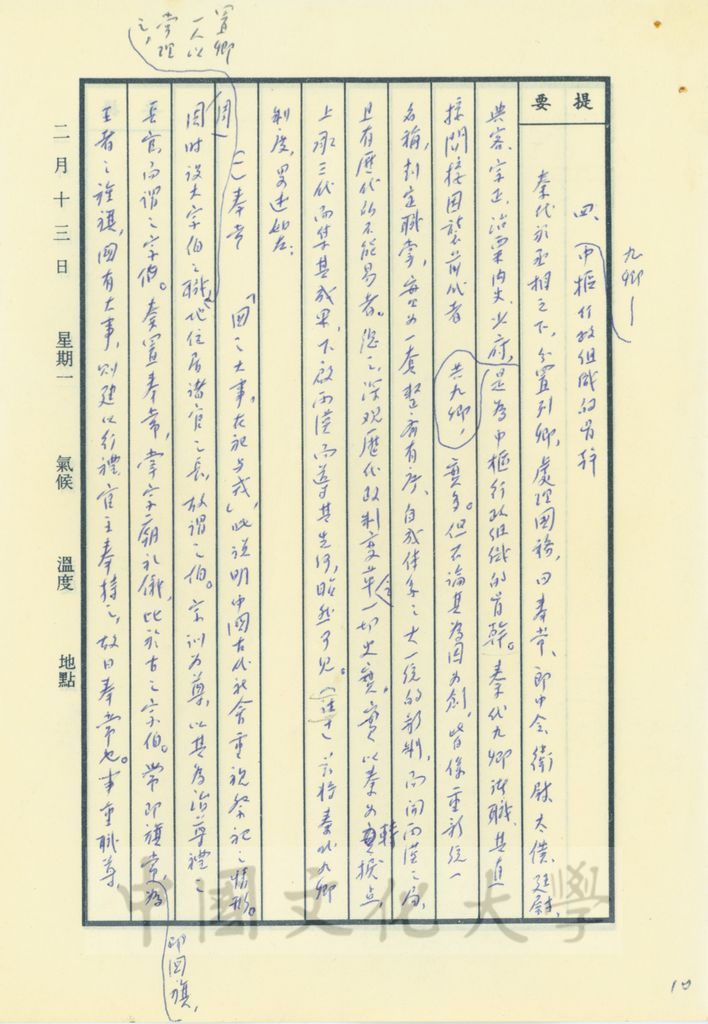 提要
九卿—
四、中樞行政組織的骨幹
秦代於丞相之下，分置列卿，處理國務，曰奉常、郎中令、衛尉、太僕、廷尉、
典客、宗正、治粟內史、少府，是為中樞行政組織的骨幹。秦代九卿諸職，其直
接間接因襲前代者
共九卿，
實多。但不論其為因為創，皆係重新統一
名稱，釐定職掌，安如一套整齊有序、自成體系之大一統的新制，而開兩漢之局，
且有歷代所不能易者。總之，深觀歷代政制變革
一切史實，實以秦為
轉捩點，
上承三代而集其成果，下啟兩漢而導其先河，昭然可見。
茲將秦代九卿
制度，略述如左：
(一)奉常
「國之大事，在祀與戎」，此說明中國古代社會重視祭祀之情形。
周
周時設大宗伯之職，
位居諸官之長，故謂之伯。宗訓為尊，以其為治尊禮之
長官，而謂之宗伯。秦置奉常，掌宗廟禮儀，比於古之宗伯。常即旗常，為
王者之旌旗，國有大事，則建以行禮，官主奉持之，故曰奉常也。事重職尊
置卿
一人以
掌理
之，
即國旗，
二月十三日 星期一 氣候 溫度 地點
中國文化大學
10